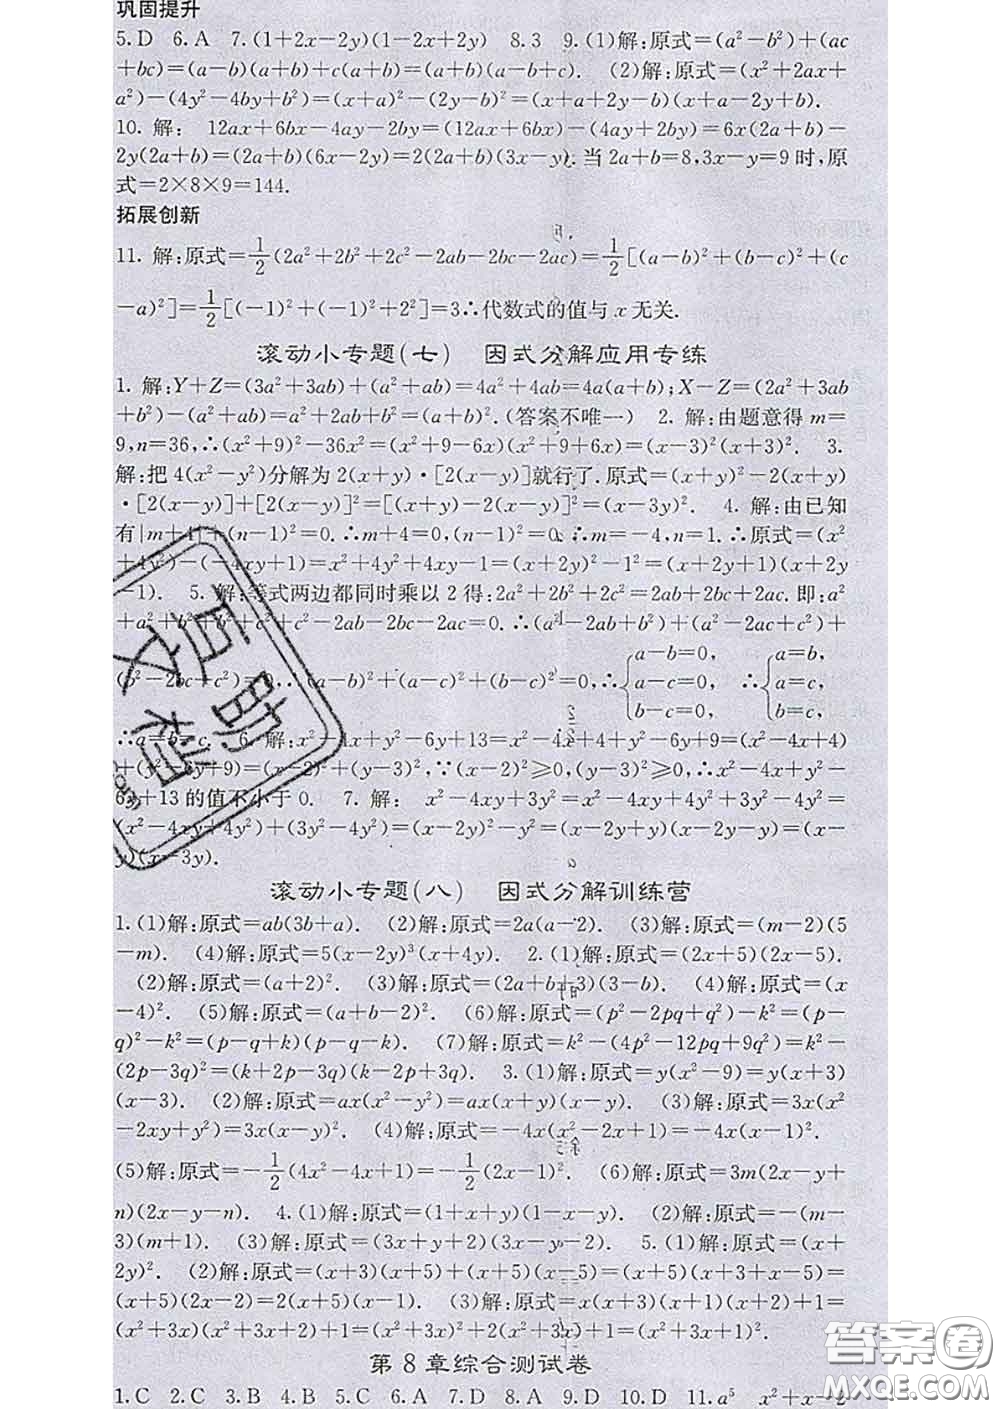 巩固提升
5.D 6.A 7.(1+2x−2y)(1−2x+2y) 8.3 9.(1)解:原式=(a²−b²)+(ac
+bc)=(a−b)(a+b)+c(a+b)=(a+b)(a−b+c). (2)解:原式=(x²+2ax+
a²)−(4y²−4by+b²)=(x+a)²−(2y−b)²=(x+a+2y−b)(x+a−2y+b).
10. 解: 12ax+6bx−4ay−2by=(12ax+6bx)−(4ay+2by)=6x(2a+b)−
2y(2a+b)=(2a+b)(6x−2y)=2(2a+b)(3x−y). 当2a+b=8,3x−y=9时,原
式=2×8×9=144.
拓展创新
11. 解:原式=1/2(2a²+2b²+2c²−2ab−2bc−2ac)=1/2[(a−b)²+(b−c)²+(c
−a)²]=1/2[(−1)²+(−1)²+2²]=3∴代数式的值与x无关.
滚动小专题(七) 因式分解应用专练
1. 解:Y+Z=(3a²+3ab)+(a²+ab)=4a²+4ab=4a(a+b);X−Z=(2a²+3ab
+b²)−(a²+ab)=a²+2ab+b²=(a+b)².(答案不唯一) 2. 解:由题意得m=
9,n=36,∴(x²+9)²−36x²=(x²+9−6x)(x²+9+6x)=(x−3)²(x+3)². 3.
解:把4(x²−y²)分解为2(x+y)·[2(x−y)]就行了.原式=(x+y)²−2(x+y)
·[2(x−y)]+[2(x−y)]²=[(x+y)−2(x−y)]²=(3x−y)². 4. 解:由已知
有|m+4|+(n−1)²=0.∴m+4=0,(n−1)²=0.∴m=−4,n=1.∴原式=(x²
+4y²)−(−4xy+1)=x²+4y²+4xy−1=(x+2y)²−1²=(x+2y+1)(x+2y
−1). 5. 解:等式两边都同时乘以2得:2a²+2b²+2c²=2ab+2bc+2ac.即:a²
+a²+b²+b²+c²+c²−2ab−2bc−2ac=0.∴(a²−2ab+b²)+(a²−2ac+c²)+
(b²−2bc+c²)=0.∴(a−b)²+(a−c)²+(b−c)²=0,∴{a−b=0, a−c=0, b−c=0, ∴{a=b, a=c, b=c,
∴a=b=c. 6. 解:x²−4x+y²−6y+13=x²−4x+4+y²−6y+9=(x²−4x+4)
+(y²−6y+9)=(x−2)²+(y−3)²,∵(x−2)²≥0,(y−3)²≥0,∴x²−4x+y²−
6y+13的值不小于0. 7. 解: x²−4xy+3y²=x²−4xy+4y²+3y²−4y²=
(x²−4xy+4y²)+(3y²−4y²)=(x−2y)²−y²=(x−2y+y)(x−2y−y)=(x−
y)(x−3y).
滚动小专题(八) 因式分解训练营
1.(1)解:原式=ab(3b+a). (2)解:原式=2a(a−2). (3)解:原式=(m−2)(5
−m). (4)解:原式=5(x−2y)³(x+4y). 2.(1)解:原式=(2x+5)(2x−5).
(2)解:原式=(a+2)². (3)解:原式=(2a+b+3)(3−b). (4)解:原式=(x
−4)². (5)解:原式=(a+b−2)². (6)解:原式=(p²−2pq+q²)−k²=(p−
q)²−k²=(p−q+k)(p−q−k). (7)解:原式=k²−(4p²−12pq+9q²)=k²−
(2p−3q)²=(k+2p−3q)(k−2p+3q). 3.(1)解:原式=y(x²−9)=y(x+3)
(x−3). (2)解:原式=ax(x²−y²)=ax(x+y)(x−y). (3)解:原式=3x(x²
−2xy+y²)=3x(x−y)². (4)解:原式=−4x(x²−2x+1)=−4x(x−1)².
(5)解:原式=−1/2(4x²−4x+1)=−1/2(2x−1)². (6)解:原式=3m(2x−y+
n)(2x−y−n). 4.(1)解:原式=(1+x+y)(1−x−y). (2)解:原式=−(m−
3)(m+1). (3)解:原式=(3x+y+2)(3x−y−2). 5.(1)解:原式=(x+
2y)². (2)解:原式=(x+3)(x+5)+(x+5)(x−5)=(x+5)(x+3+x−5)=
(x+5)(2x−2)=2(x+5)(x−1). (3)解:原式=x(x+3)(x+1)(x+2)+1=
(x²+3x)(x²+3x+2)+1=(x²+3x)²+2(x²+3x)+1=(x²+3x+1)².
第8章综合测试卷
1.C 2.C 3.B 4.B 5.C 6.A 7.D 8.A 9.D 10.D 11.a⁵ x²+x−2
百助
文档
答案圈
MXQE.COM